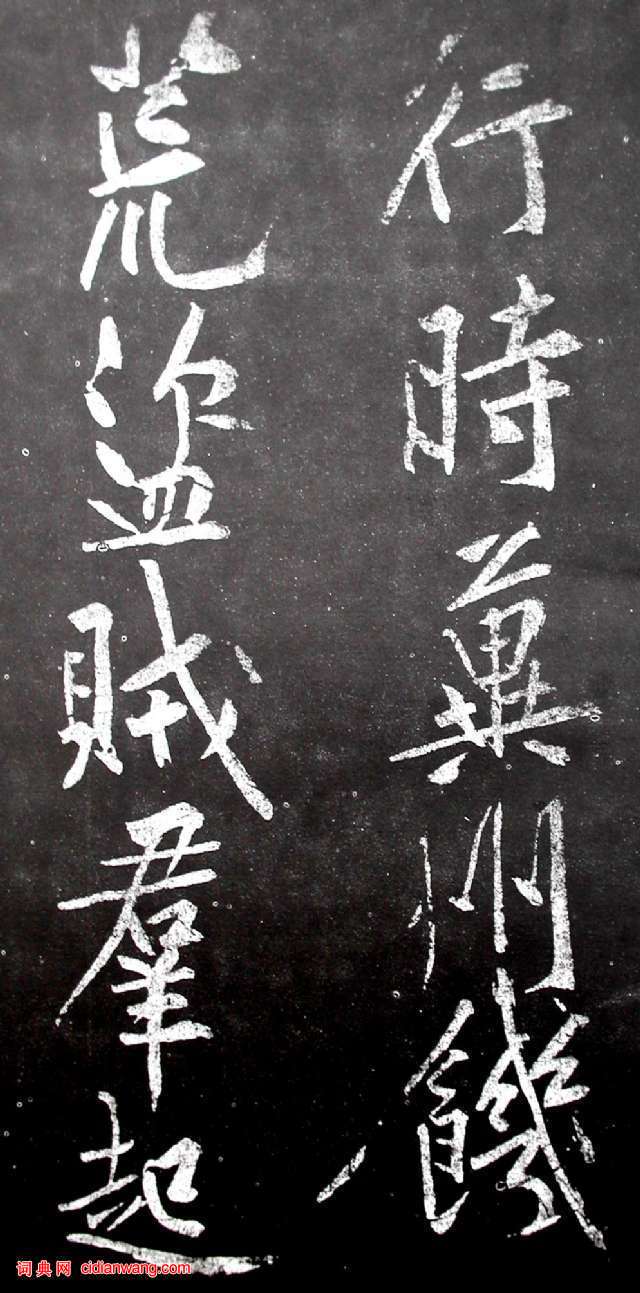 行時冀州饑
荒盜賊羣起
词典网 cidianwang.com